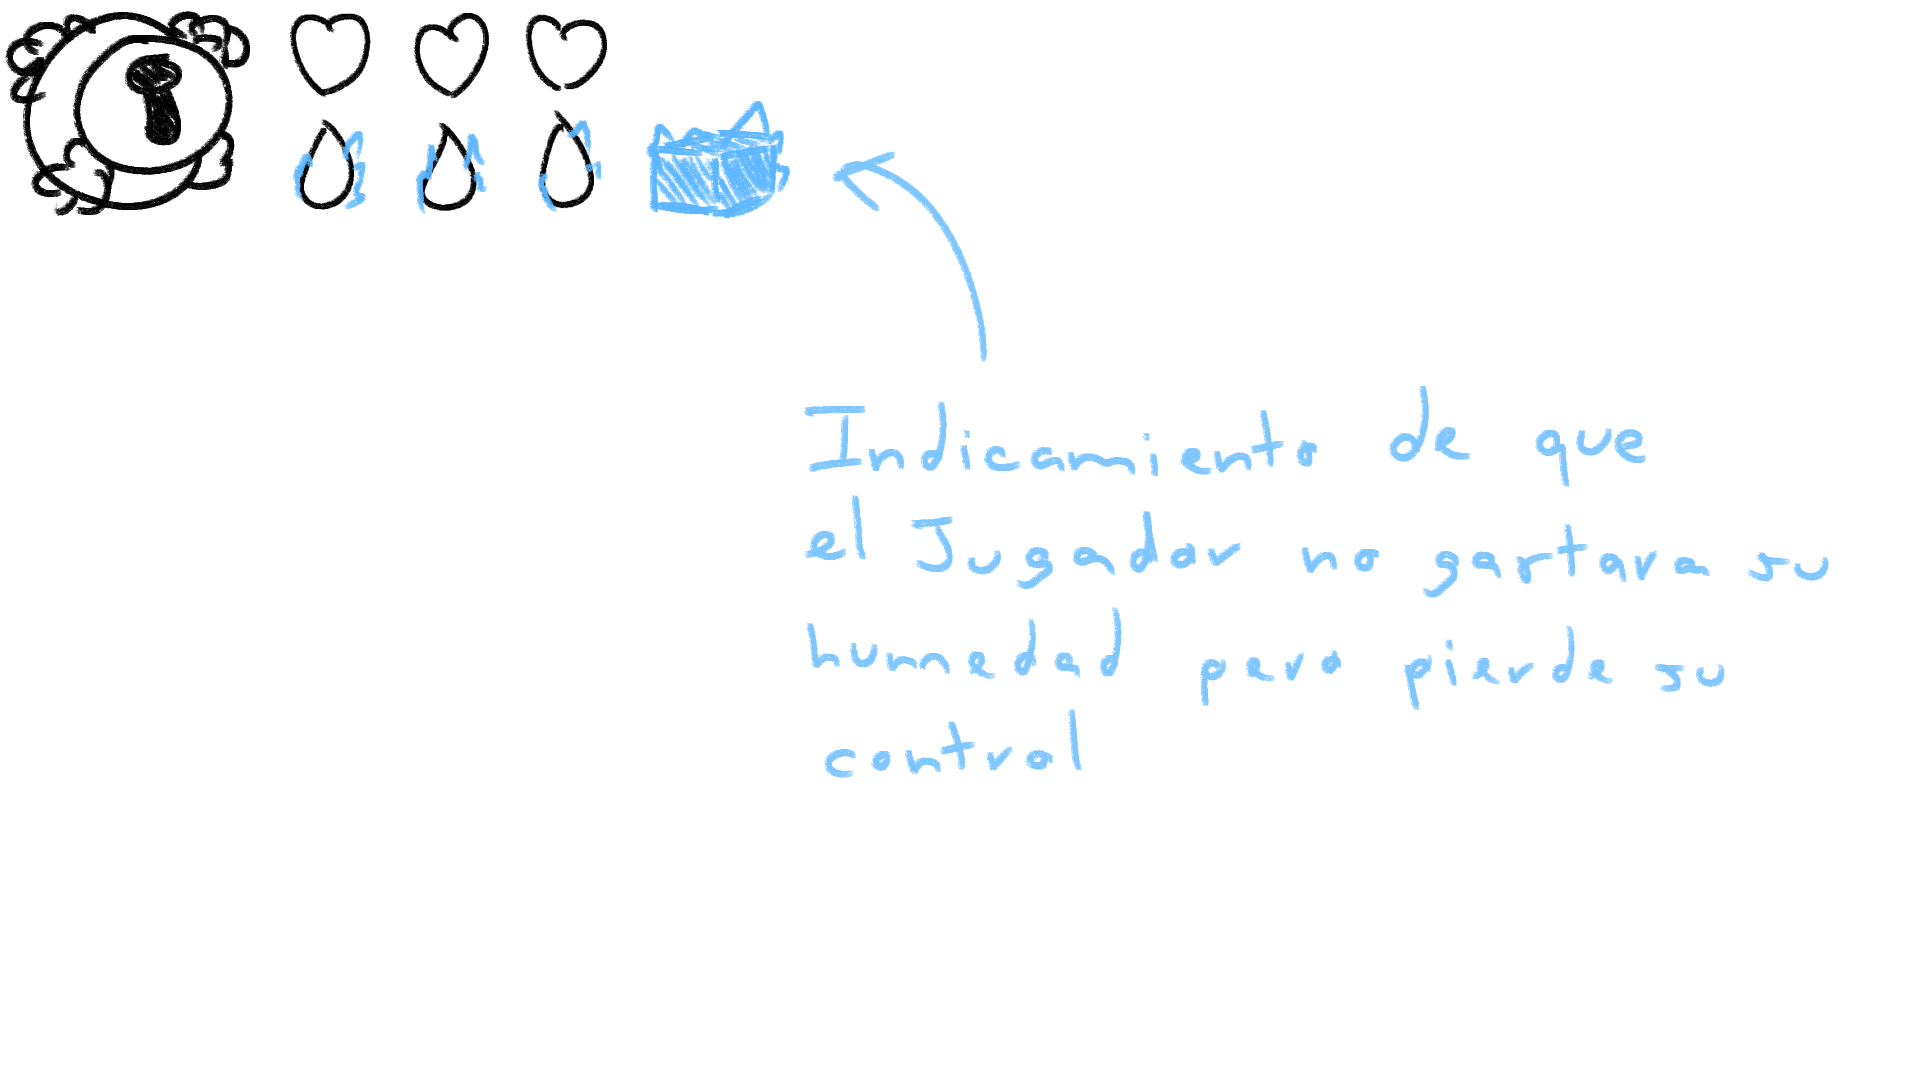 Indicamiento de que
el Jugador no gastara su
humedad pero pierde su
control